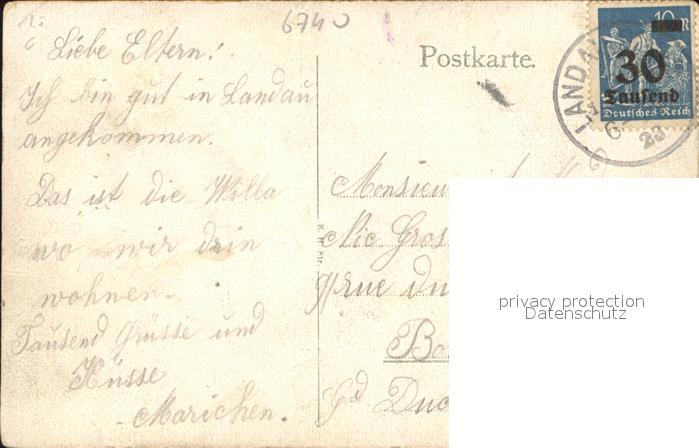 6740
Liebe Eltern!
Ich bin gut in Landau
angekommen.
Das ist die Willa
wo wir drin
wohnen.
Tausend Grüsse und
Küsse
Marichen.
Postkarte.
LANDAU
23
10
30
Tausend
Deutsches Reich
Monsieur
Nic Gros
rue du
Gd Duc
privacy protection
Datenschutz